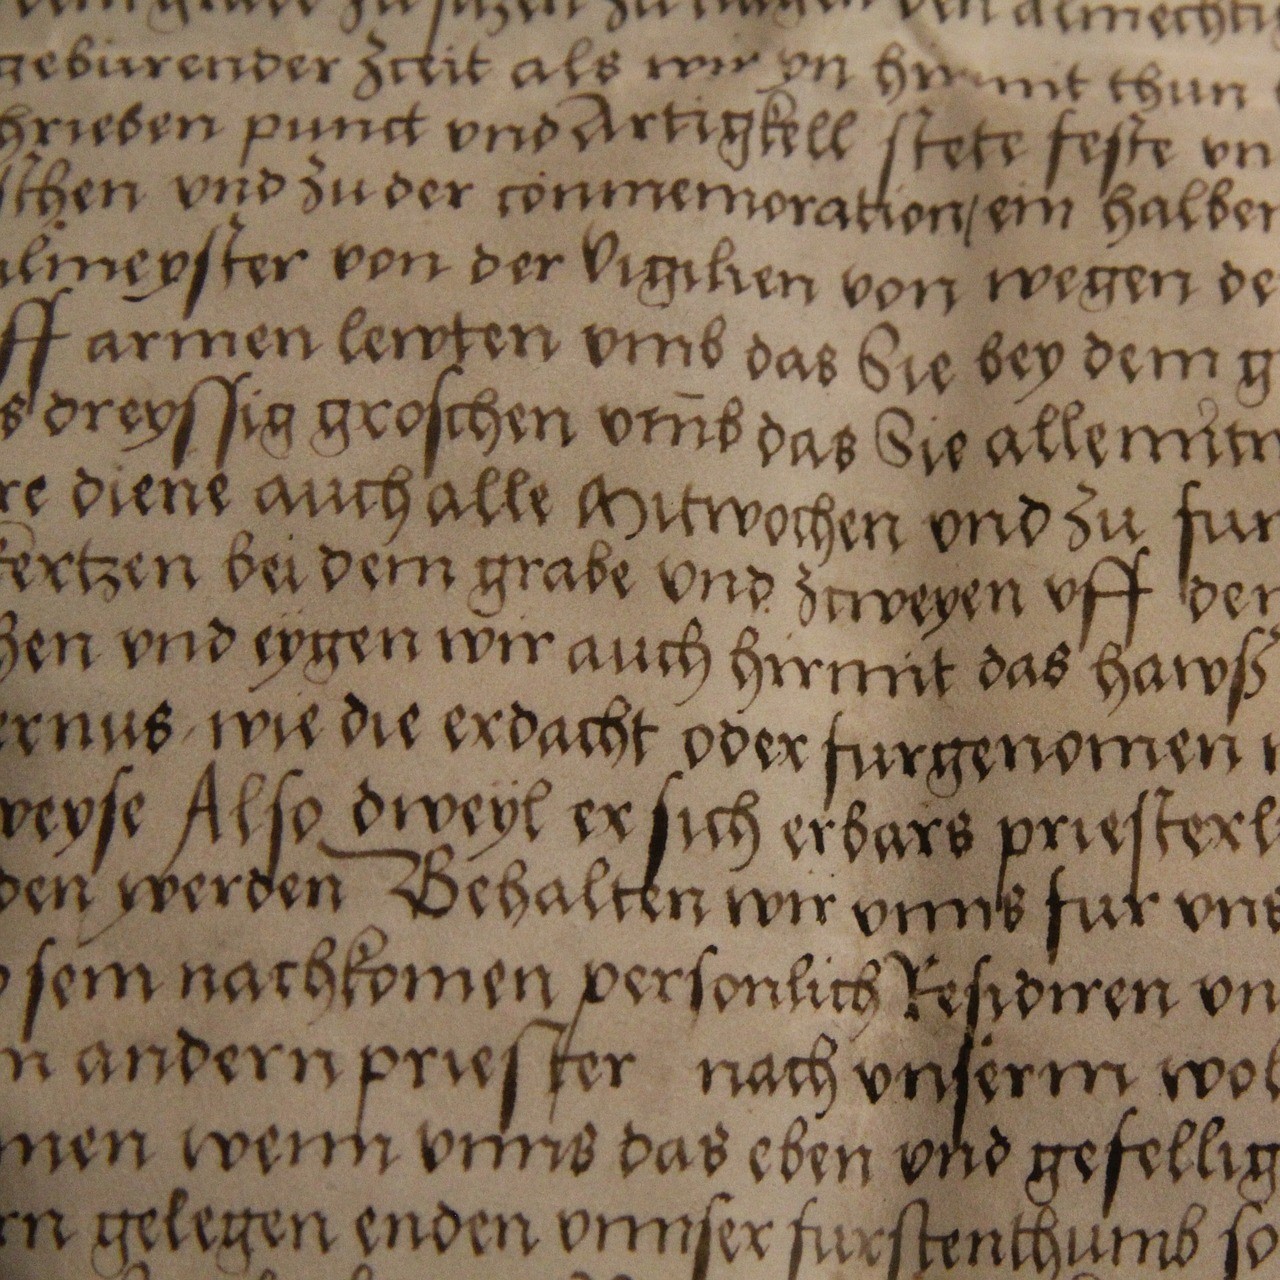 grabe zu singen zu tragen den almechti
geburender zceit als wir vn hirmit thun
hrieben punct vnd Artigkell stete feste vn
schen vnd zu der conmemoration / ein halben
ulmeyster von der Vigilien von wegen de
ff armen lewten vmb das Sie bey dem g
s dreyssig groschen vmb das Sie alle mitw
re diene auch alle Mitwochen vnd zu fur
kertzen bei dem grabe vnd zcweyen vff den
hen vnd eygen wir auch hirmit das hawß
ernus wie die erdacht oder furgenomen
weyse Also dweyl er sich erbars priesterl
den werden Behalten wir vnns fur vns
sein nachkomen personlich Residiren vn
n andern priester nach vnserm wol
men wenn vnns das eben vnd gefellig
rn gelegen enden vnnser furstenthumb so